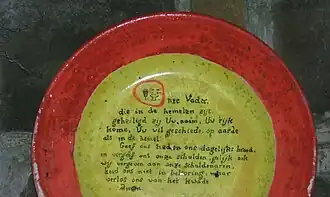 nze Vader,
die in de hemelen zijt
geheiligd zij Uw naam, Uw rijk
kome, Uw wil geschiede, op aarde
als in de hemel.
Geef ons heden ons dagelijks brood,
en vergeef ons onze schulden gelijk ook
wij vergeven aan onze schuldenaren,
leid ons niet in bekoring, maar
verlos ons van het kwade
Amen.